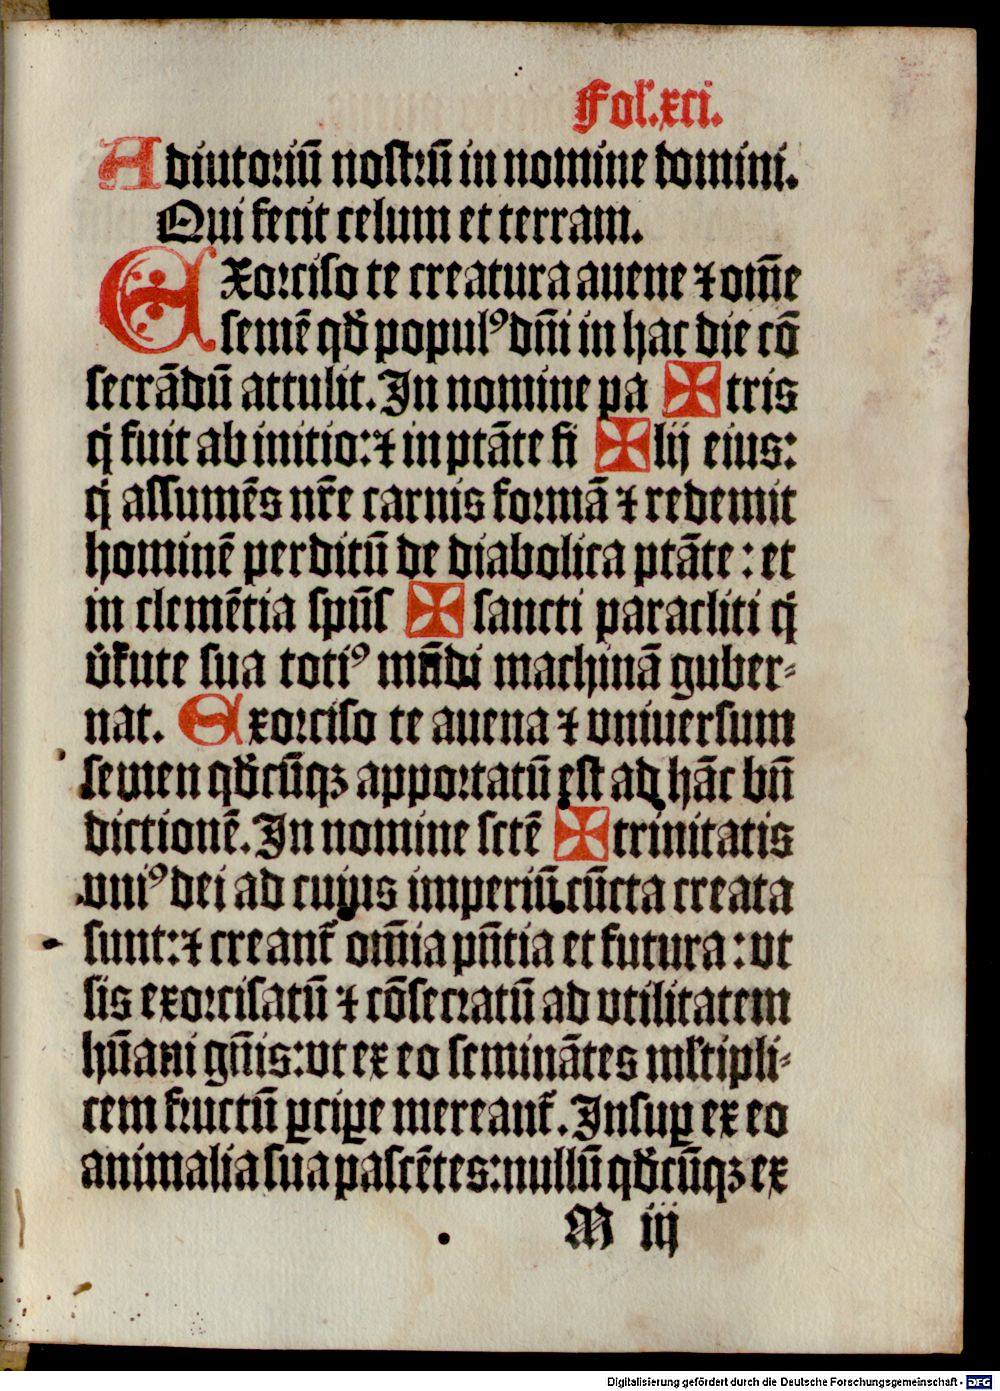 Fol.xci.
Adiutoriū nostrū in nomine domini.
Qui fecit celum et terram.
Exorciso te creatura auene ⁊ om̄e
semē qd̄ popul⁹ dn̄i in hac die cō
secrādū attulit. In nomine pa ✠ tris
q̇ fuit ab initio: ⁊ in ptāte fi ✠ lij eius:
q̇ assumēs nr̄e carnis formā ⁊ redemit
hominē perditū de diabolica ptāte: et
in clemētia spūs ✠ sancti paracliti q̇
v̓tute sua toti⁹ mūdi machinā guber⸗
nat. Exorciso te auena ⁊ vniuersum
semen qd̄cūqꝫ apportatū est ad hāc bn̄
dictionē. In nomine sctē ✠ trinitatis
vni⁹ dei ad cuius imperiū cūcta creata
sunt: ⁊ creant᷑ om̄ia pn̄tia et futura: vt
sis exorcisatū ⁊ cōsecratū ad vtilitatem
hūani gn̄is: vt ex eo seminātes ml̓tipli⸗
cem fructū ꝑciꝑe mereant᷑. Insuꝑ ex eo
animalia sua pascētes: nullū qd̄cūqꝫ ex
M iij
Digitalisierung gefördert durch die Deutsche Forschungsgemeinschaft - DFG